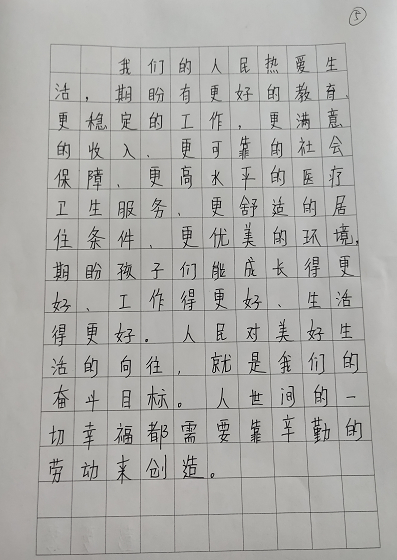 ⑤
我们的人民热爱生
活，期盼有更好的教育、
更稳定的工作，更满意
的收入、更可靠的社会
保障、更高水平的医疗
卫生服务、更舒适的居
住条件、更优美的环境，
期盼孩子们能成长得更
好、工作得更好、生活
得更好。人民对美好生
活的向往，就是我们的
奋斗目标。人世间的一
切幸福都需要靠辛勤的
劳动来创造。